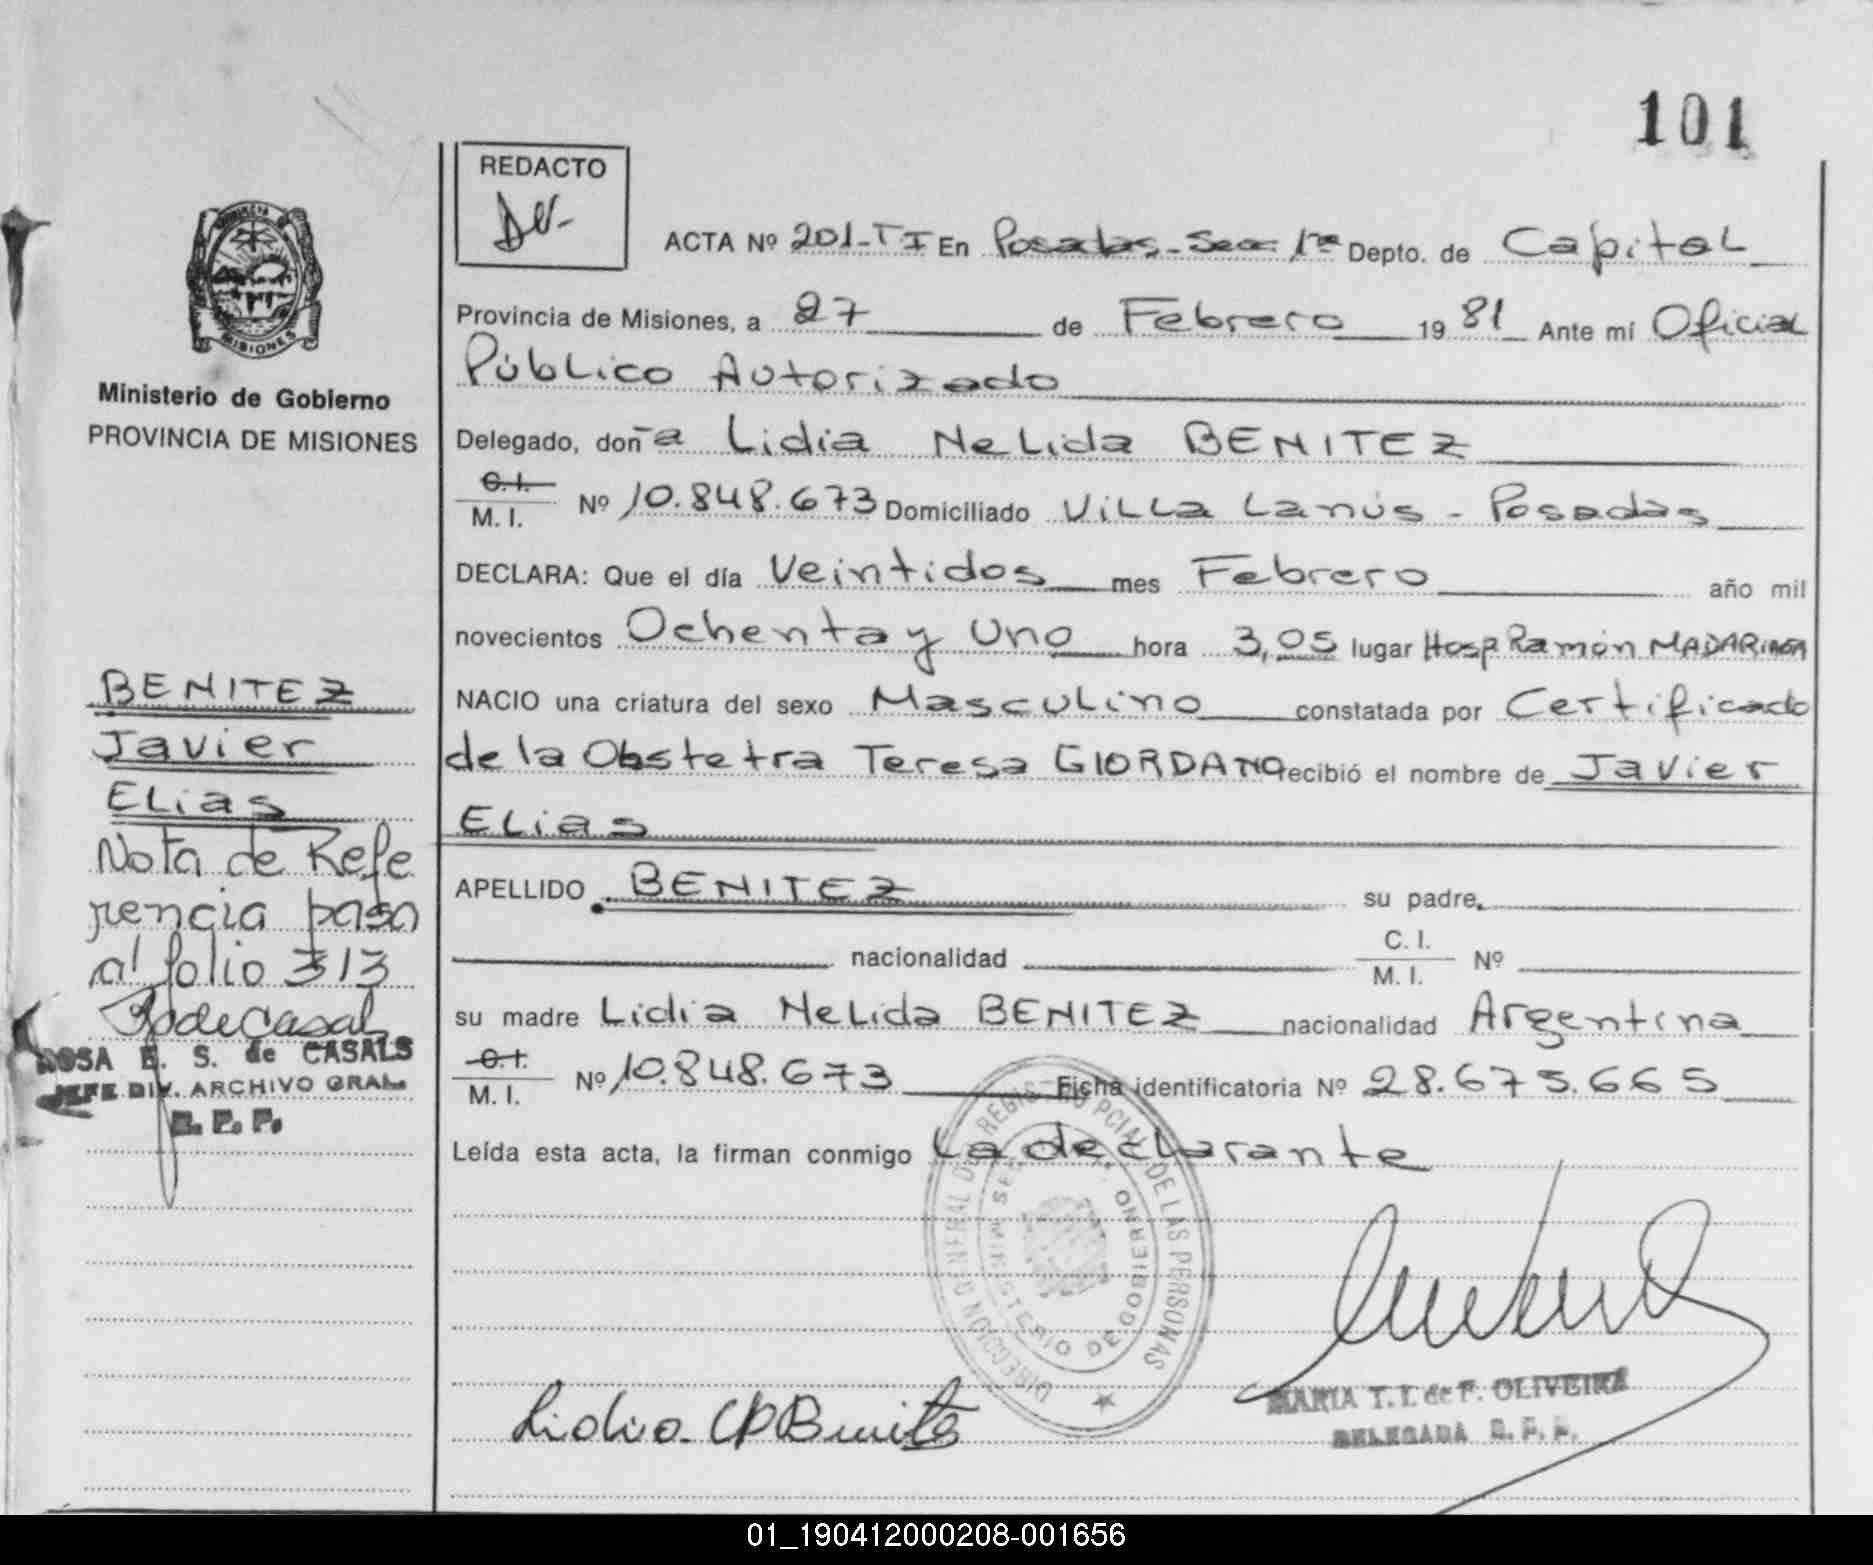 101
REDACTO
ACTA Nº 201-TI En Posadas-Secc 1ra Depto. de Capital
Provincia de Misiones, a 27 de Febrero 1981 Ante mí Oficial
Público Autorizado
Delegado, doña Lidia Nelida BENITEZ
C.I.
M. I. Nº 10.848.673 Domiciliado Villa Lanús - Posadas
DECLARA: Que el día Veintidos mes Febrero año mil
novecientos Ochenta y Uno hora 3,05 lugar Hosp Ramón MADARIAGA
NACIO una criatura del sexo Masculino constatada por Certificado
de la Obstetra Teresa GIORDANO recibió el nombre de Javier
Elias
APELLIDO BENITEZ su padre
nacionalidad C. I. Nº
M. I.
su madre Lidia Nelida BENITEZ nacionalidad Argentina
C.I.
M. I. Nº 10.848.673 Ficha identificatoria Nº 28.675.665
Leída esta acta, la firman conmigo La declarante
DIRECCION GENERAL DEL REGISTRO PCIAL. DE LAS PERSONAS
MINISTERIO DE GOBIERNO
MARIA T. I. de F. OLIVEIRA
DELEGADA R. P. P.
PROVINCIA
MISIONES
Ministerio de Gobierno
PROVINCIA DE MISIONES
BENITEZ
Javier
Elias
Nota de Refe
rencia paso
al folio 313
ROSA E. S. de CASALS
JEFE DIV. ARCHIVO GRAL.
R. P. P.
01_190412000208-001656